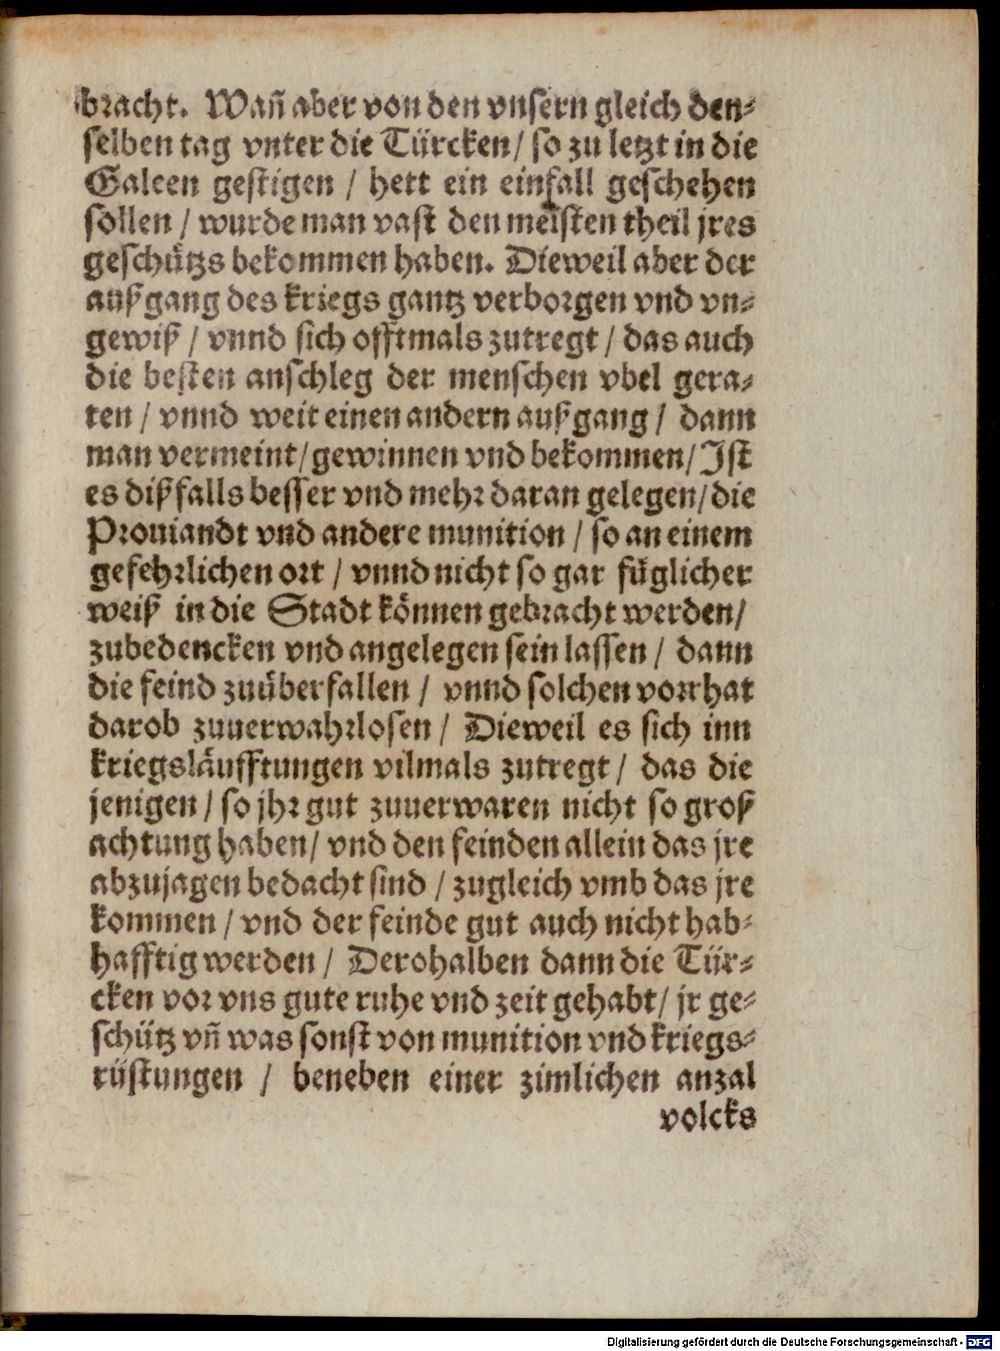 bracht. Wañ aber von den vnsern gleich den-
selben tag vnter die Türcken/ so zu letzt in die
Galeen gestigen / hett ein einfall geschehen
sollen / wurde man vast den meisten theil jres
geschützs bekommen haben. Dieweil aber der
außgang des kriegs gantz verborgen vnd vn-
gewiß / vnnd sich offtmals zutregt / das auch
die besten anschleg der menschen vbel gera-
ten / vnnd weit einen andern außgang / dann
man vermeint/ gewinnen vnd bekommen/ Ist
es dißfalls besser vnd mehr daran gelegen/ die
Prouiandt vnd andere munition / so an einem
gefehrlichen ort / vnnd nicht so gar füglicher
weiß in die Stadt können gebracht werden/
zubedencken vnd angelegen sein lassen / dann
die feind zuüberfallen / vnnd solchen vorrhat
darob zuuerwahrlosen / Dieweil es sich inn
kriegsläufftungen vilmals zutregt / das die
jenigen / so jhr gut zuuerwaren nicht so groß
achtung haben/ vnd den feinden allein das jre
abzujagen bedacht sind / zugleich vmb das jre
kommen / vnd der feinde gut auch nicht hab-
hafftig werden / Derohalben dann die Tür-
cken vor vns gute ruhe vnd zeit gehabt/ jr ge-
schütz vñ was sonst von munition vnd kriegs-
rüstungen / beneben einer zimlichen anzal
volcks
Digitalisierung gefördert durch die Deutsche Forschungsgemeinschaft - DFG